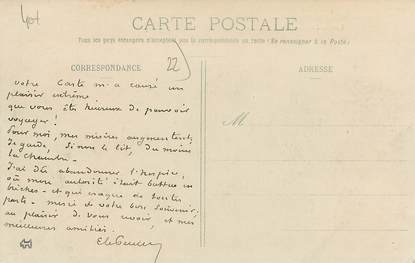 Lot
CARTE POSTALE
Tous les pays étrangers n'acceptent pas la correspondance au recto (Se renseigner à la Poste)
CORRESPONDANCE
22
ADRESSE
M
votre carte m'a causé un
plaisir extrême
que vous êtes heureux de pouvoir
voyager !
Pour moi, mes misères augmentent,
je garde, sinon le lit, du moins
la chambre -
J'ai dû abandonner l'hospice,
où mon autorité était battue en
brèches - et qui craque de toutes
parts - merci de votre bon souvenir,
au plaisir de vous revoir, et mes
meilleures amitiés.